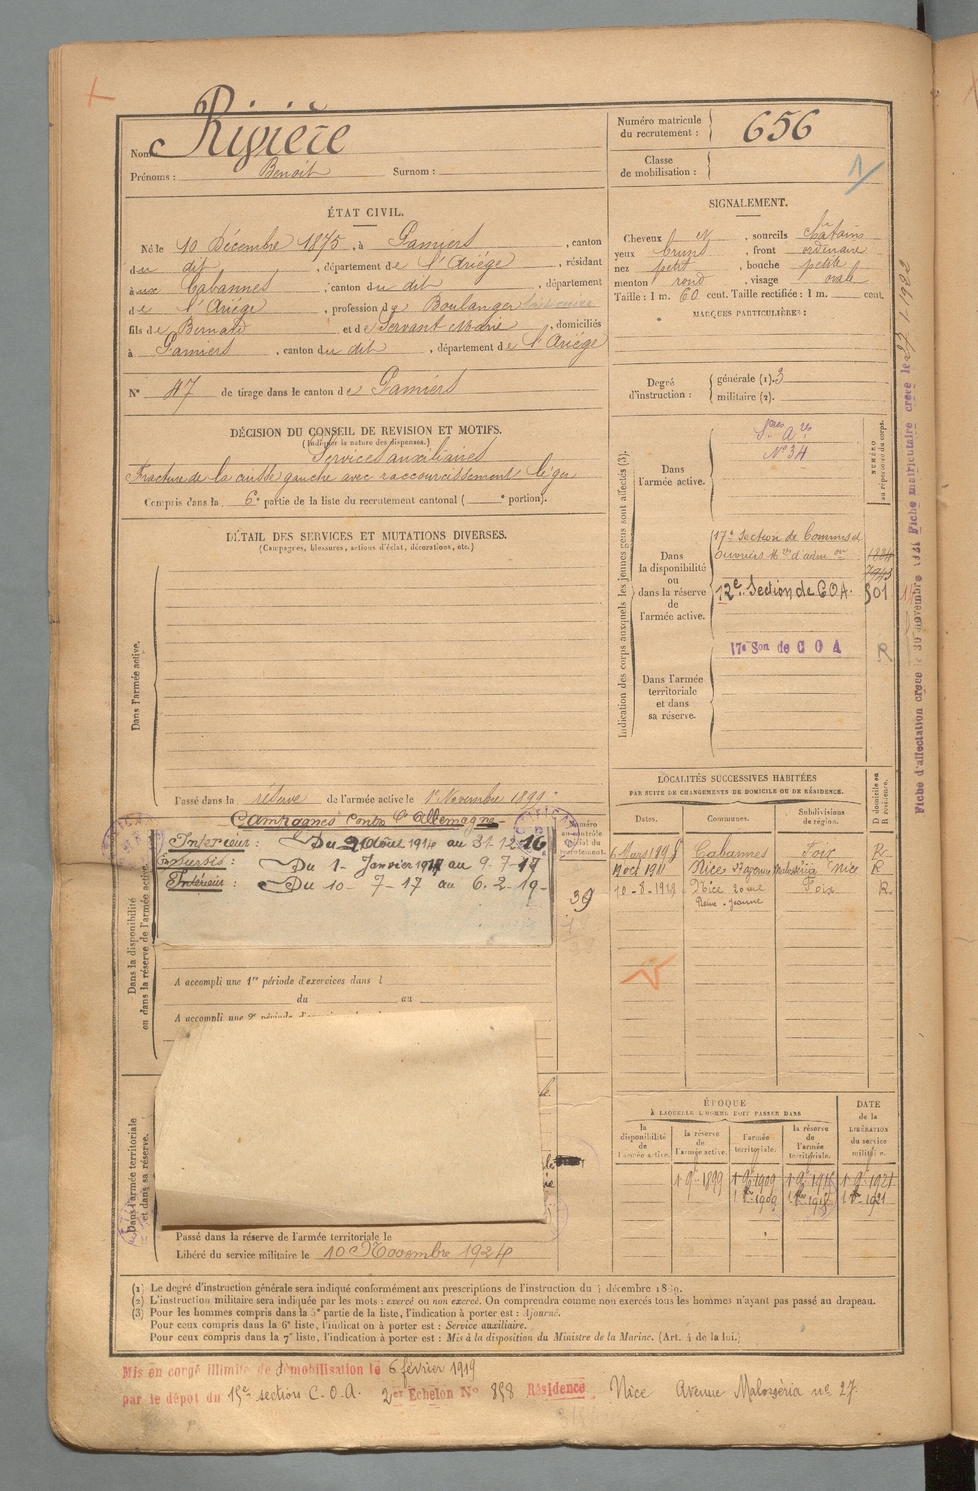 Nom : Rivière
Prénoms : Benoit Surnom :
Numéro matricule
du recrutement : 656
Classe
de mobilisation :
ÉTAT CIVIL.
Né le 10 Décembre 1875, à Pamiers, canton
du dit, département de l'Ariége, résidant
à aux Cabannes, canton du dit, département
de l'Ariége, profession de Boulanger
fils de Bernard et de Servant Marie, domiciliés
à Pamiers, canton du dit, département de l'Ariége
N° 47 de tirage dans le canton de Pamiers
DÉCISION DU CONSEIL DE REVISION ET MOTIFS.
(Indiquer la nature des dispenses.)
Services auxiliaires
Fracture de la cuisse gauche avec raccourcissement léger
Compris dans la 6e partie de la liste du recrutement cantonal ( e portion).
DÉTAIL DES SERVICES ET MUTATIONS DIVERSES.
(Campagnes, blessures, actions d'éclat, décorations, etc.)
Dans l'armée active.
Passé dans la réserve de l'armée active le 1er Novembre 1899.
Campagnes contre l'Allemagne
Intérieur : Du 2 Août 1914 au 31.12.16
Du 1- Janvier 1917 au 9.7.17
Intérieur : Du 10-7-17 au 6.2.19-
39
Dans la disponibilité
ou dans la réserve de l'armée active.
A accompli une 1re période d'exercices dans l
du au
A accompli une 2e
Dans l'armée territoriale
et dans sa réserve.
Passé dans la réserve de l'armée territoriale le
Libéré du service militaire le 10 Novembre 1924
SIGNALEMENT.
Cheveux N, sourcils châtains
yeux bruns, front ordinaire
nez petit, bouche petite
menton rond, visage ovale
Taille : 1 m. 60 cent. Taille rectifiée : 1 m. cent.
MARQUES PARTICULIÈRES :
Degré
d'instruction :
générale (1). 3
militaire (2).
Indication des corps auxquels les jeunes gens sont affectés (3).
NUMÉRO
au répertoire du corps.
Dans
l'armée active.
N° 34
Dans
la disponibilité
ou
dans la réserve
de
l'armée active.
17e Section de Commis et
Ouvriers
12e Section de COA. 501
17e Son de C O A R
Dans l'armée
territoriale
et dans
sa réserve.
LOCALITÉS SUCCESSIVES HABITÉES
PAR SUITE DE CHANGEMENTS DE DOMICILE OU DE RÉSIDENCE.
Dates. Communes. Subdivisions
de région. D domicile ou
R résidence.
6 Mars 1898 Cabannes Foix R
Nice Nice R
Nice Foix R
Reine-Jeanne
ÉPOQUE
À LAQUELLE L'HOMME DOIT PASSER DANS
la
disponibilité
de
l'armée active.
la réserve
de
l'armée active.
l'armée
territoriale.
la réserve
de
l'armée
territoriale.
DATE
de la
LIBÉRATION
du service
militaire.
1 9bre 1899 1 9bre 1909 1 9bre 1915 1 9bre 1921
(1) Le degré d'instruction générale sera indiqué conformément aux prescriptions de l'instruction du 4 décembre 1889.
(2) L'instruction militaire sera indiquée par les mots : exercé ou non exercé. On comprendra comme non exercés tous les hommes n'ayant pas passé au drapeau.
(3) Pour les hommes compris dans la 5e partie de la liste, l'indication à porter est : Ajourné.
Pour ceux compris dans la 6e liste, l'indication à porter est : Service auxiliaire.
Pour ceux compris dans la 7e liste, l'indication à porter est : Mis à la disposition du Ministre de la Marine. (Art. 4 de la loi.)
Mis en congé illimité de démobilisation le 6 février 1919
par le dépôt du 15e section C.O.A. 2er Echelon N° 858 Résidence Nice Avenue Malosséria no 27.
Fiche d'affectation créée le 30 novembre 1921 Fiche matriculaire créée le